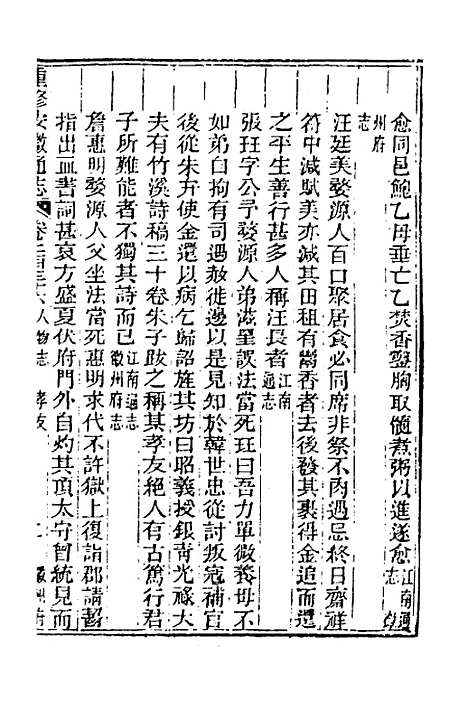 愈同邑鮑乙母垂亡乙焚香鑿胸取髓煮粥以進遂愈江南通志
州府志
汪廷美婺源人百口聚居食必同席非祭不肉遇忌終日齋祥
符中減賦美亦減其田租有鬻香者去後發其裹得金追而還
之平生善行甚多人稱汪長者江南通志
張珏字公予婺源人弟滋星誤法當死珏曰吾力單微養母不
如弟白拘有司遇赦徙邊以是見知於韓世忠從討叛寇補官
後從朱弁使金還以病乞歸詔旌其坊曰昭義授銀青光祿大
夫有竹溪詩稿三十卷朱子跋之稱其孝友絕人有古篤行君
子所難能者不獨其詩而已江南通志徽州府志
詹惠明婺源人父坐法當死惠明求代不許獄上復詣郡請齧
指出血書詞甚哀方盛夏伏府門外自灼其頂太守曾統見而
重修安徽通志 卷二百 六 人物志 孝友 二 徽州府